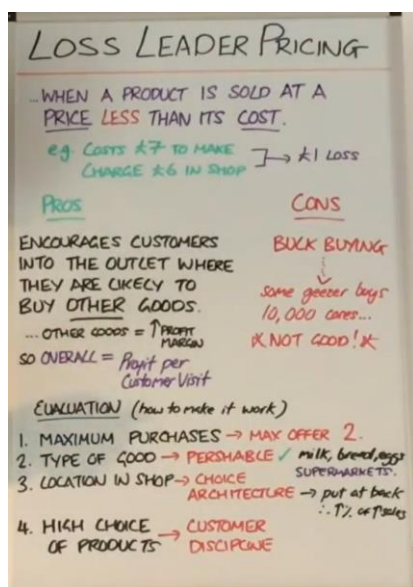 LOSS LEADER PRICING
...WHEN A PRODUCT IS SOLD AT A
PRICE LESS THAN ITS COST.
e.g. COSTS £7 TO MAKE
CHARGE £6 IN SHOP → £1 LOSS
PROS
ENCOURAGES CUSTOMERS
INTO THE OUTLET WHERE
THEY ARE LIKELY TO
BUY OTHER GOODS.
... OTHER GOODS = ↑ PROFIT
MARGIN
SO OVERALL = Profit per
Customer Visit
CONS
BULK BUYING
Some geezer buys
10,000 cares...
NOT GOOD!
EVALUATION (how to make it work)
1. MAXIMUM PURCHASES → MAX OFFER 2.
2. TYPE OF GOOD → PERSHABLE ✓ milk, bread, eggs
SUPERMARKETS.
3. LOCATION IN SHOP → CHOICE
ARCHITECTURE → put at back
∴ ↑% of ↑ sales
4. HIGH CHOICE
OF PRODUCTS → CUSTOMER
DISCIPLINE